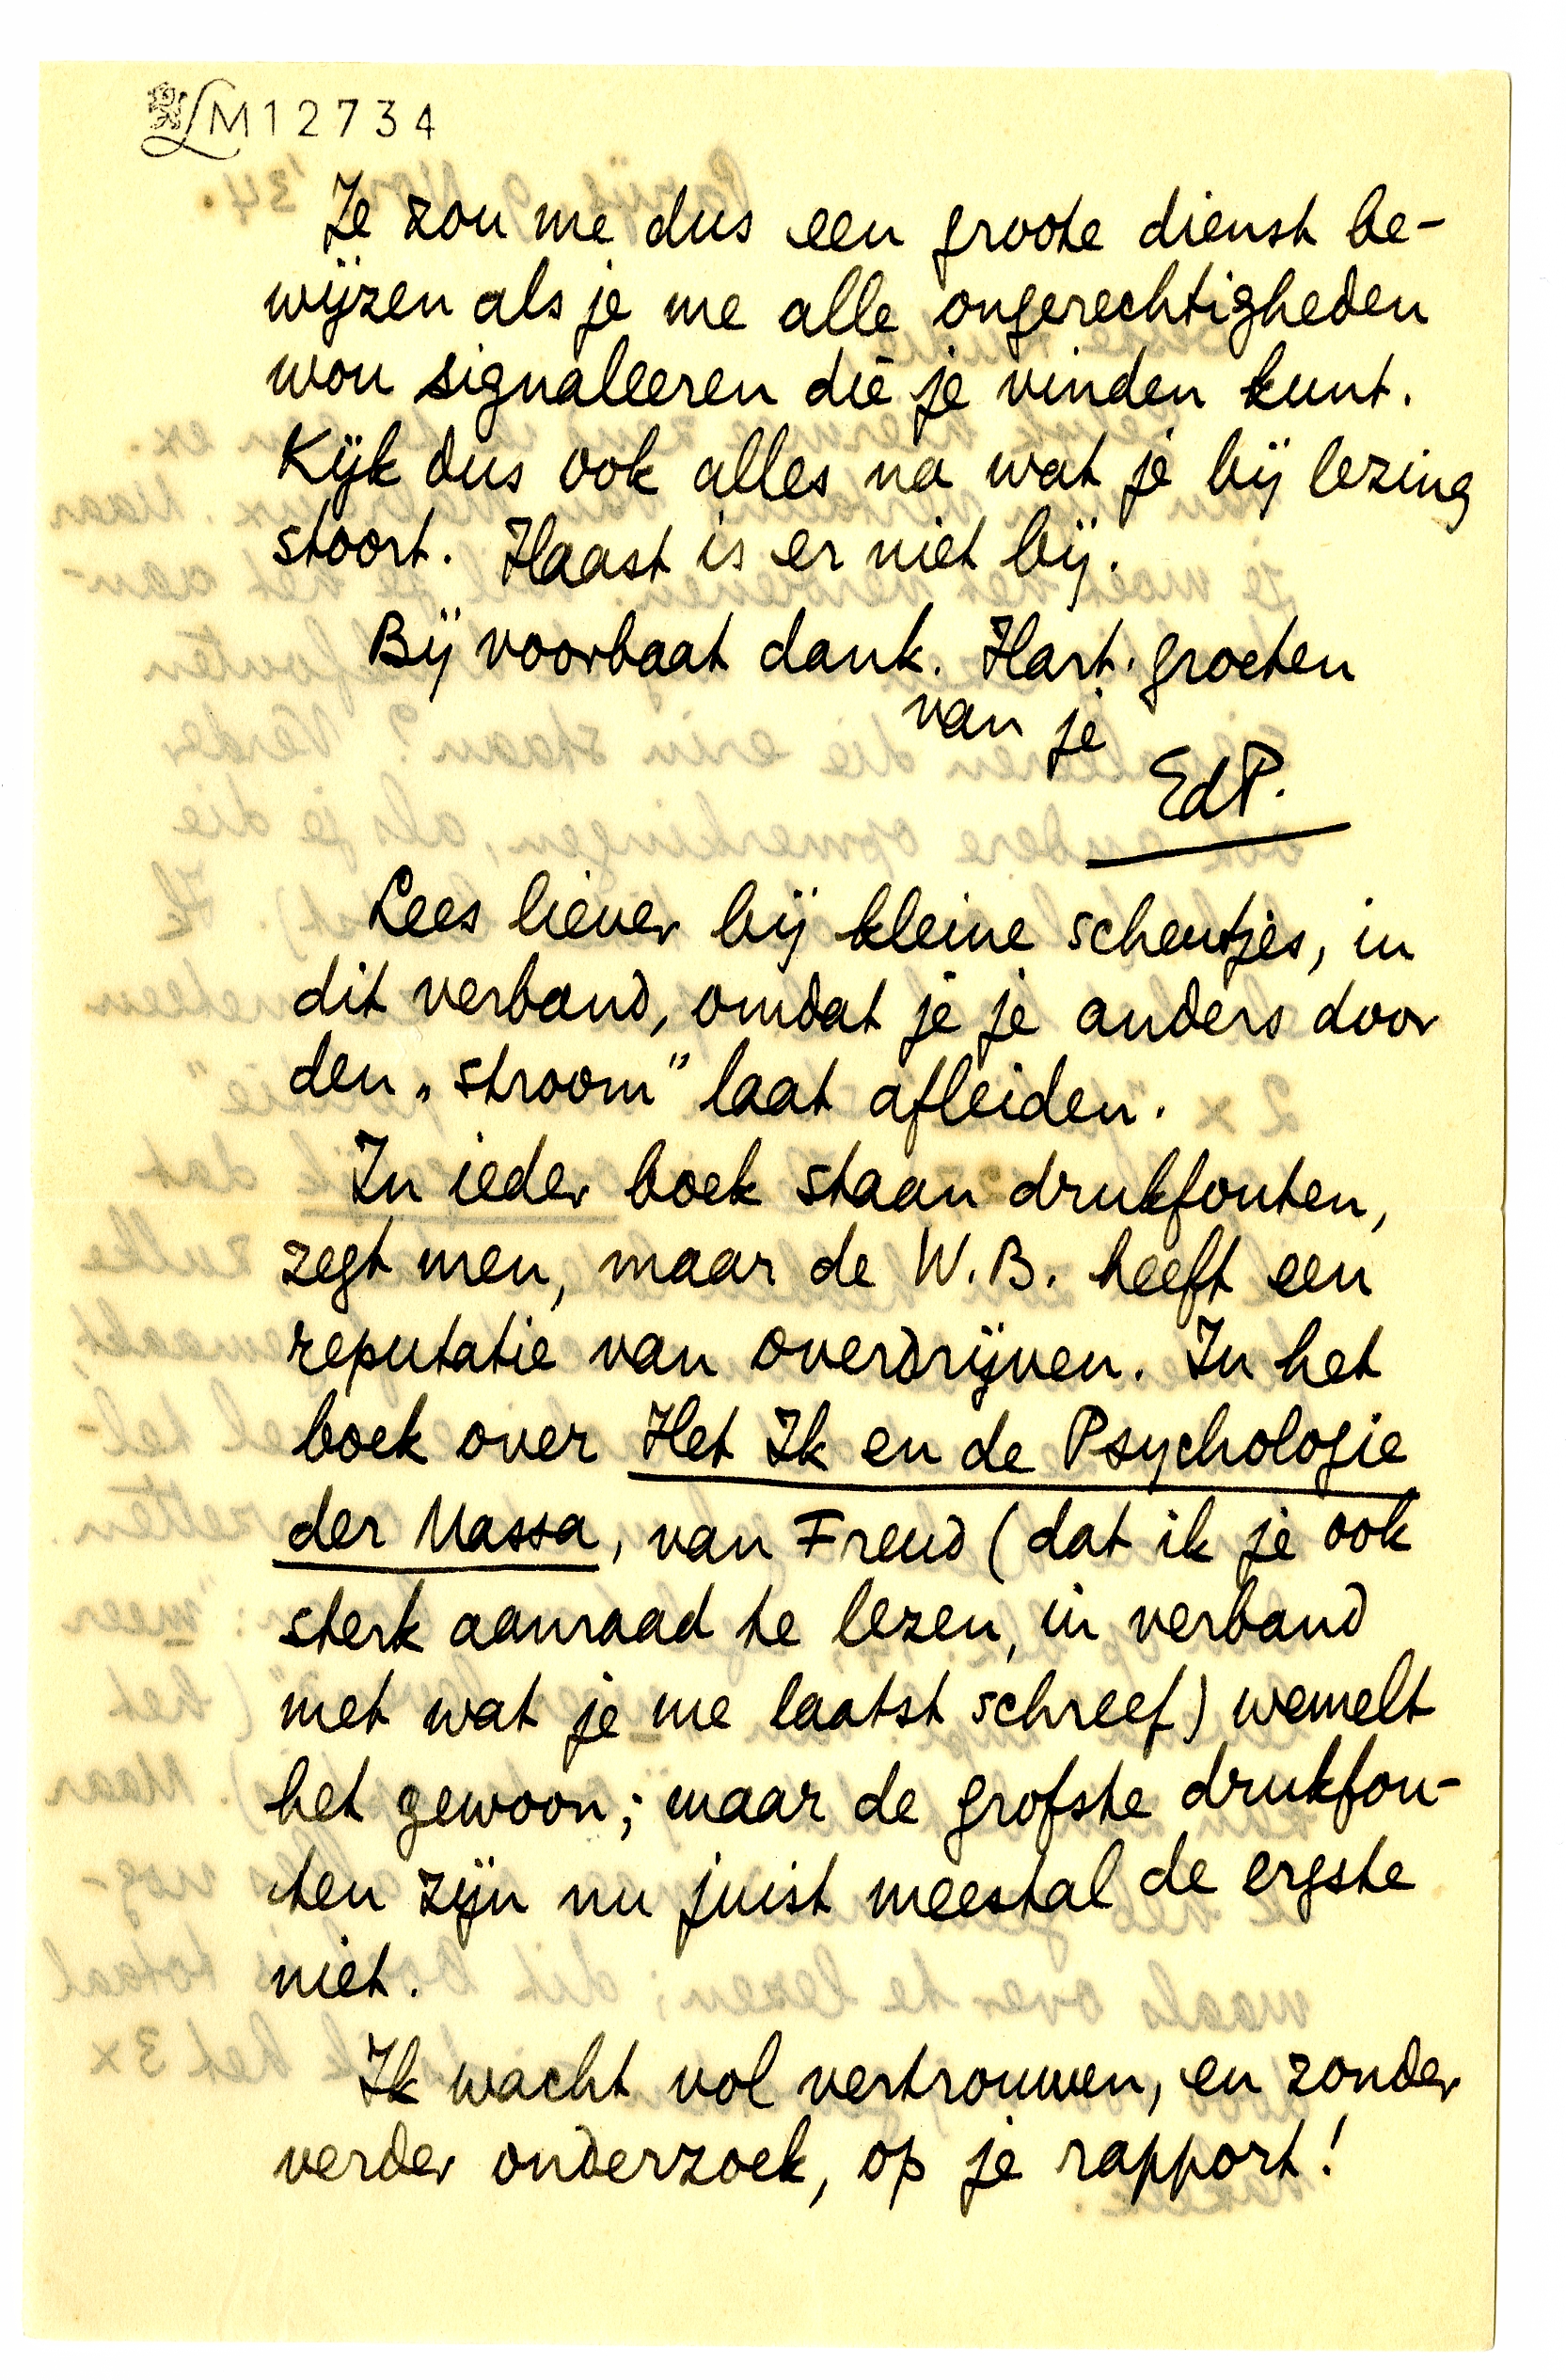 LM12734
Je zou me dus een groote dienst be-
wijzen als je me alle ongerechtigheden
wou signaleeren die je vinden kunt.
Kijk dus ook alles na wat je bij lezing
stoort. Haast is er niet bij.
Bij voorbaat dank. Hart. groeten
van je
EdP.
Lees liever bij kleine scheutjes, in
dit verband, omdat je je anders door
den „stroom” laat afleiden.
In ieder boek staan drukfouten,
zegt men, maar de W.B. heeft een
reputatie van overdrijven. In het
boek over Het Ik en de Psychologie
der Massa, van Freud (dat ik je ook
sterk aanraad te lezen, in verband
met wat je me laatst schreef) wemelt
het gewoon; maar de grofste drukfou-
ten zijn nu juist meestal de ergste
niet.
Ik wacht vol vertrouwen, en zonder
verder onderzoek, op je rapport!